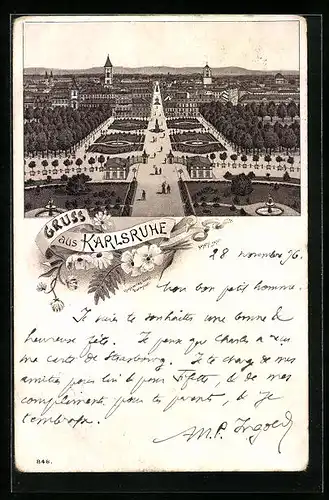 GRUSS
aus KARLSRUHE
28 novembre 96.
Mon bon petit homme.
Je viens te souhaiter une bonne &
heureuse fête. Je pense que Charles a reçu
ma carte de Strasbourg. Je te charge de mes
amitiés pour lui & pour Fifette, & de mes
compliments pour tes parents, & je
t'embrasse.
M.P. Ingold
846.